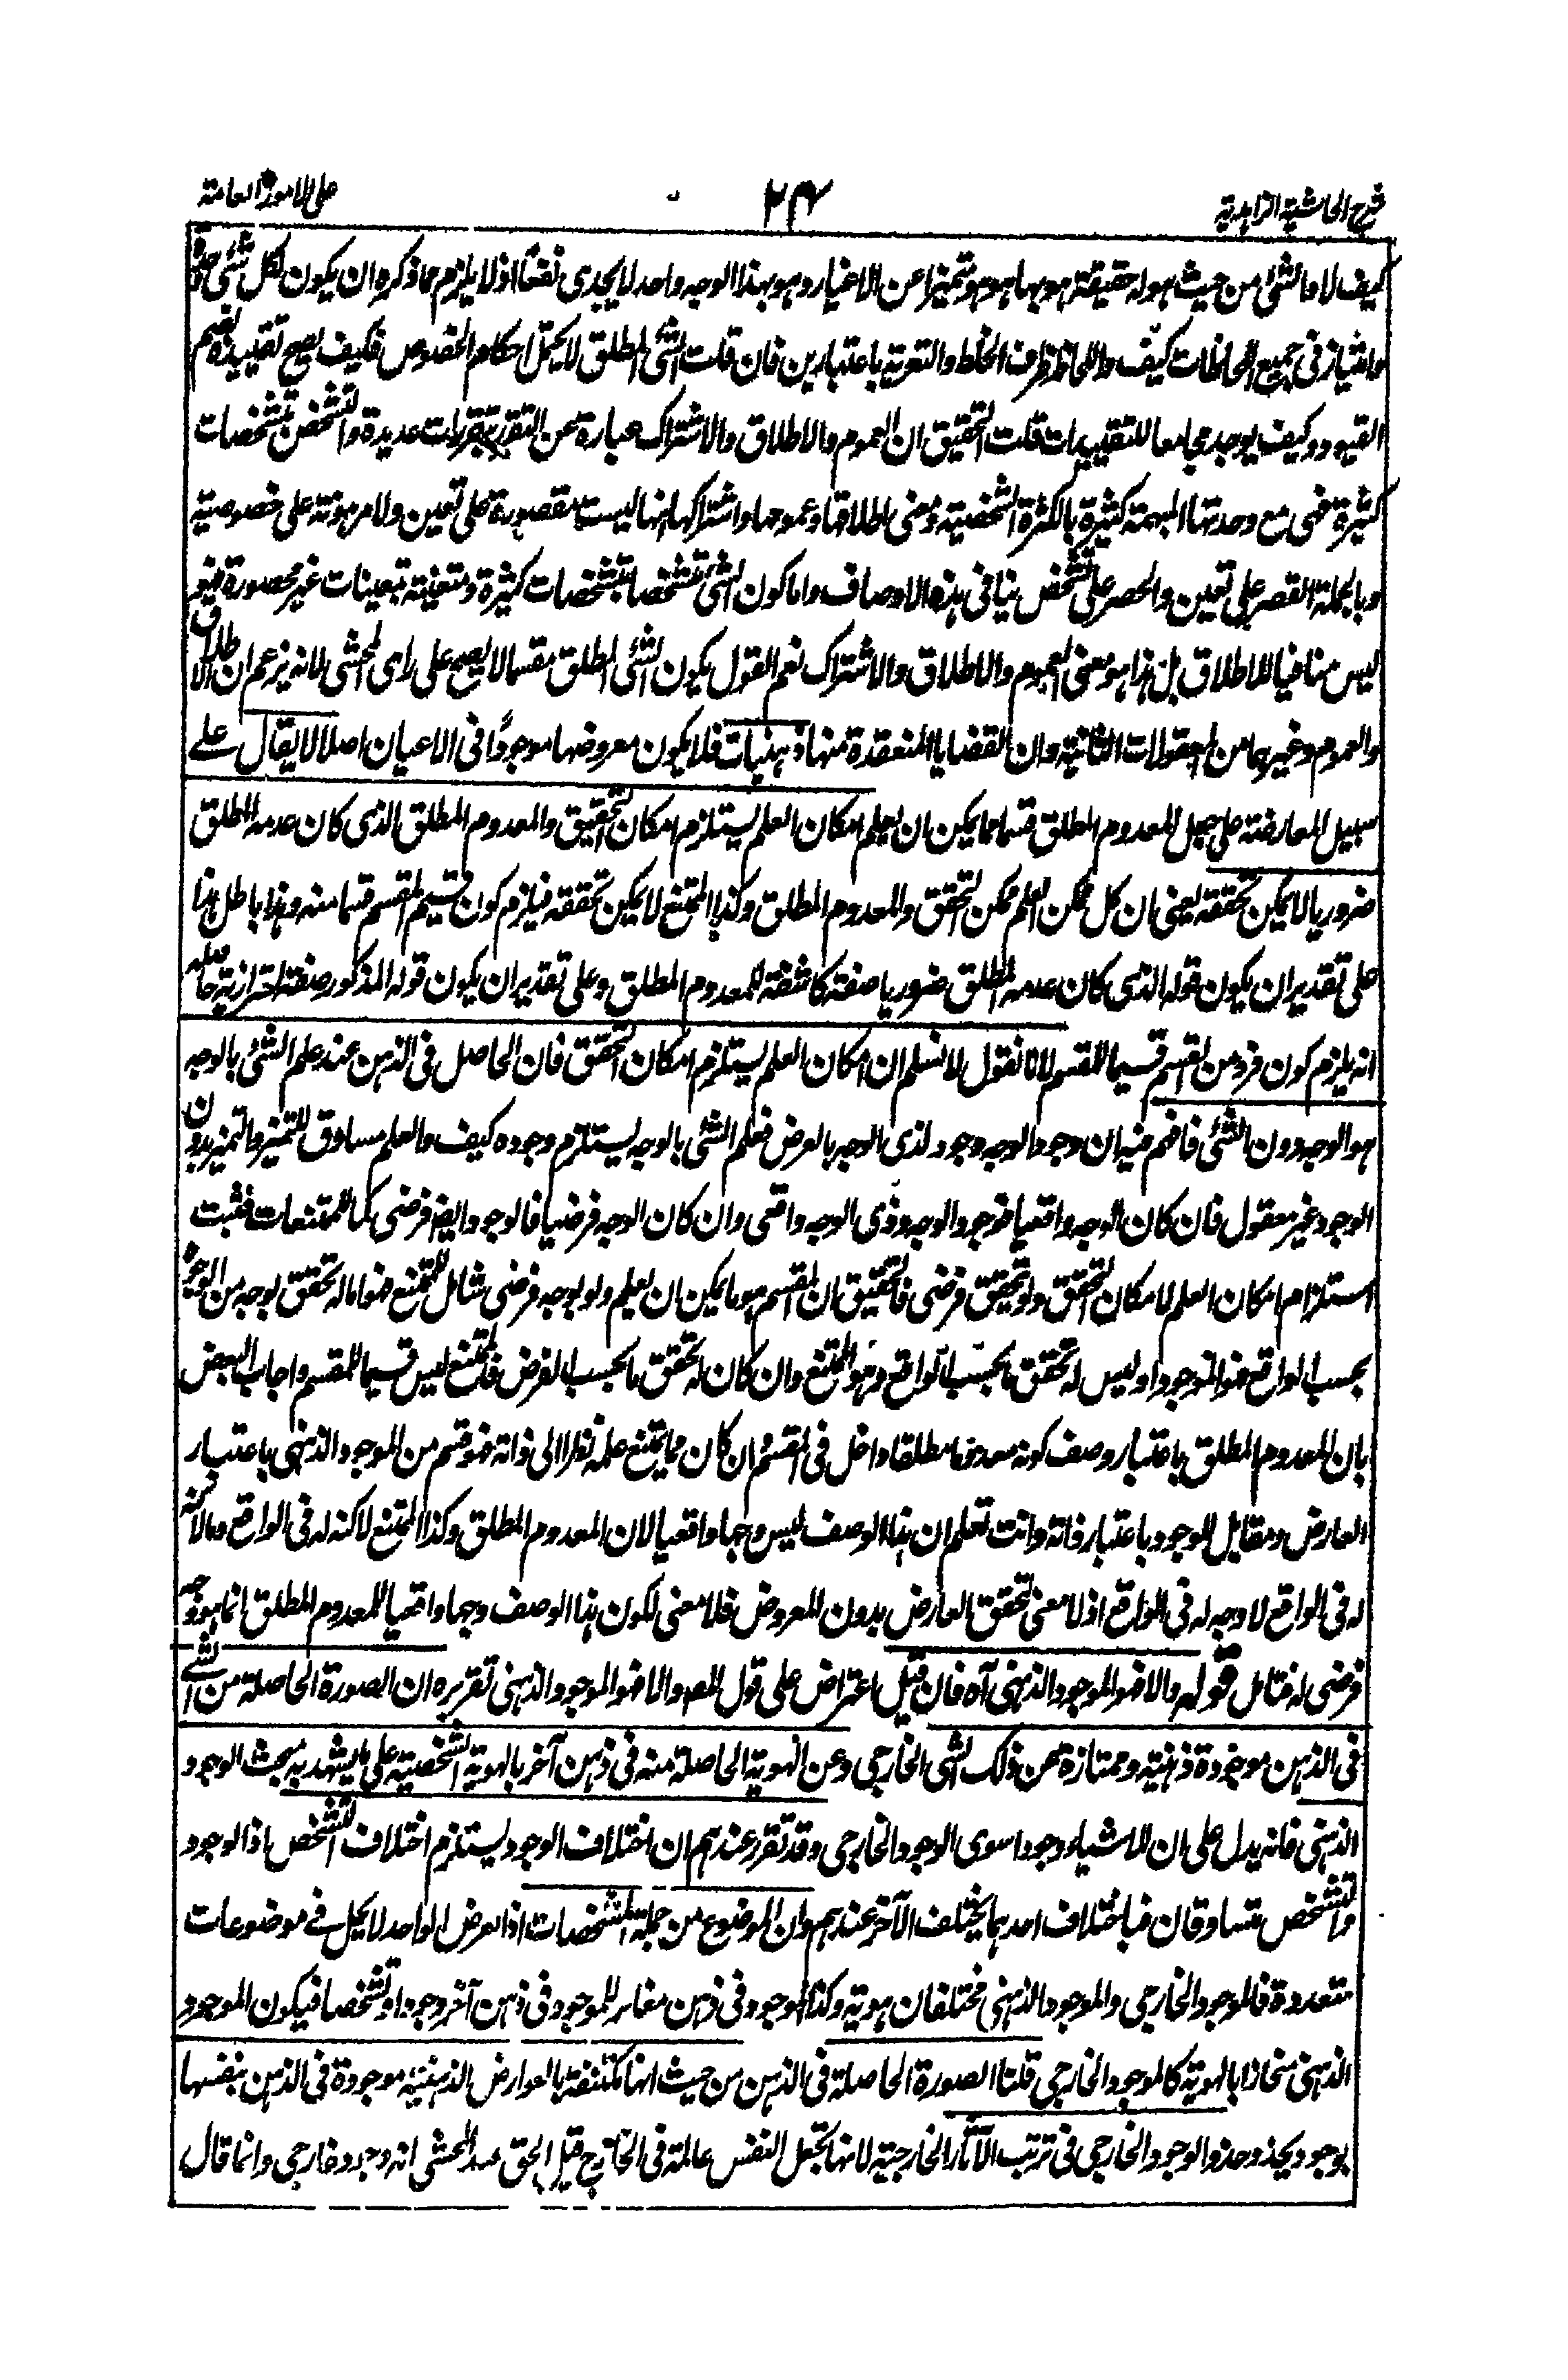 شرح الحاشية الزاهدية
٢٤
على الامور العامة
كيف لا والشئ من حيث هو له حقيقة هو بها هو هو متميزا عن الاغيار وهو بهذا الوجه واحد لا يجدى نفعا اذ لا يلزم مما ذكره ان يكون لكل شئ
وامتياز فى جميع اللحاظات كيف واللحاظ ظرف الخلط والتعرية باعتبارين فان قلت الشئ المطلق لا يحتمل احكام الخصوص فكيف يصح تقييده بضم
القيود وكيف يوجد مجامعا للتقييدات قلت التحقيق ان العموم والاطلاق والاشتراك عبارة عن التقرر بتقررات عديدة والتشخص بتشخصات
كثيرة فهى مع وحدتها المبهمة كثيرة بالكثرة الشخصية ومعنى اطلاقها وعمومها واشتراكها انها ليست مقصورة على تعين ولا مرهونة على خصوصية
وبالجملة القصر على تعين والحصر على تشخص ينافى هذه الاوصاف واما كون الشئ متشخصا بتشخصات كثيرة ومتعينة بتعينات غير محصورة فهو
ليس منافيا للاطلاق بل هذا هو معنى العموم والاطلاق والاشتراك نعم القول بكون الشئ المطلق مقسما لا يصح على راى المحشى لانه يزعم ان الاطلاق
والعموم وغيرهما من المعقولات الثانية وان القضايا المنعقدة منها ذهنيات فلا يكون معروضها موجودا فى الاعيان اصلا لا يقال على
سبيل المعارضة على جعل المعدوم المطلق قسما مما يمكن ان يعلم امكان العلم يستلزم امكان التحقيق والمعدوم المطلق الذى كان عدمه المطلق
ضروريا لا يمكن تحققه يعنى ان كل ممكن العلم ممكن التحقق والمعدوم المطلق وكذا الممتنع لا يمكن تحققه فيلزم كون قسيم المقسم قسما منه وهذا باطل هذا
على تقدير ان يكون قوله الذى كان عدمه المطلق ضروريا صفة كاشفة للمعدوم المطلق وعلى تقدير ان يكون قوله المذكور صفة احترازية حاصله
انه يلزم كون فرد من القسم قسيما للمقسم لانا نقول لا نسلم ان امكان العلم يستلزم امكان التحقق فان الحاصل فى الذهن عند علم الشئ بالوجه
هو الوجه دون الشئ فافهم فيه ان وجود الوجه وجود لذى الوجه بالعرض فعلم الشئ بالوجه يستلزم وجوده كيف والعلم مساوق للتميز والتميز بدون
الوجود غير معقول فان كان الوجه واقعيا فوجود الوجه وذى الوجه واقعى وان كان الوجه فرضيا فالوجود ايضا فرضى كما للممتنعات فثبت
استلزام امكان العلم لامكان التحقق ولو تحقق فرضى فالتحقيق ان المقسم هو ما يمكن ان يعلم ولو بوجه فرضى شامل للممتنع فهو اما له تحقق بوجه من الوجوه
بحسب الواقع فهو الموجود او ليس له تحقق ما بحسب الواقع وهو الممتنع وان كان له تحقق ما بحسب الفرض فالممتنع ليس قسيما للمقسم واجاب البعض
بان المعدوم المطلق باعتبار وصف كونه معدوما مطلقا داخل فى المقسم وان كان مما يمتنع علمه نظرا الى ذاته فهو قسم من الموجود الذهنى باعتبار
العارض ومقابل للوجود باعتبار ذاته وانت تعلم ان هذا الوصف ليس وجها واقعيا لان المعدوم المطلق وكذا الممتنع لا كنه له فى الواقع وما لا كنه
له فى الواقع لا وجه له فى الواقع اذ لا معنى لتحقق العارض بدون المعروض فلا معنى لكون هذا الوصف وجها واقعيا للمعدوم المطلق انما هو وجه
فرضى له فتامل قوله والا فهو الموجود الذهنى آه فان قيل اعتراض على قول المص والا فهو الموجود الذهنى تقريره ان الصورة الحاصلة من الشئ
فى الذهن موجودة ذهنية وممتازة عن ذلك الشى الخارجى وعن الهوية الحاصلة منه فى ذهن آخر بالهوية الشخصية على ما يشهد به مبحث الوجود
الذهنى فانه يدل على ان للاشياء وجودا سوى الوجود الخارجى وقد تقرر عندهم ان اختلاف الوجود يستلزم اختلاف التشخص اذ الوجود
والتشخص متساوقان فباختلاف احدهما يختلف الآخر عندهم وان الموضوع من جملة المشخصات اذ العرض الواحد لا يحل فى موضوعات
متعددة فالموجود الخارجى والموجود الذهنى مختلفان هوية وكذا الموجود فى ذهن مغاير للموجود فى ذهن آخر وجودا وتشخصا فيكون الموجود
الذهنى منحازا بالهوية كالموجود الخارجى قلنا الصورة الحاصلة فى الذهن من حيث انها مكتنفة بالعوارض الذهنية موجودة فى الذهن بنفسها
بوجود يحذو حذو الوجود الخارجى فى ترتب الآثار الخارجية لانها تجعل النفس عالمة فى الخارج قيل الحق عند المحشى انه وجود خارجى وانما قال